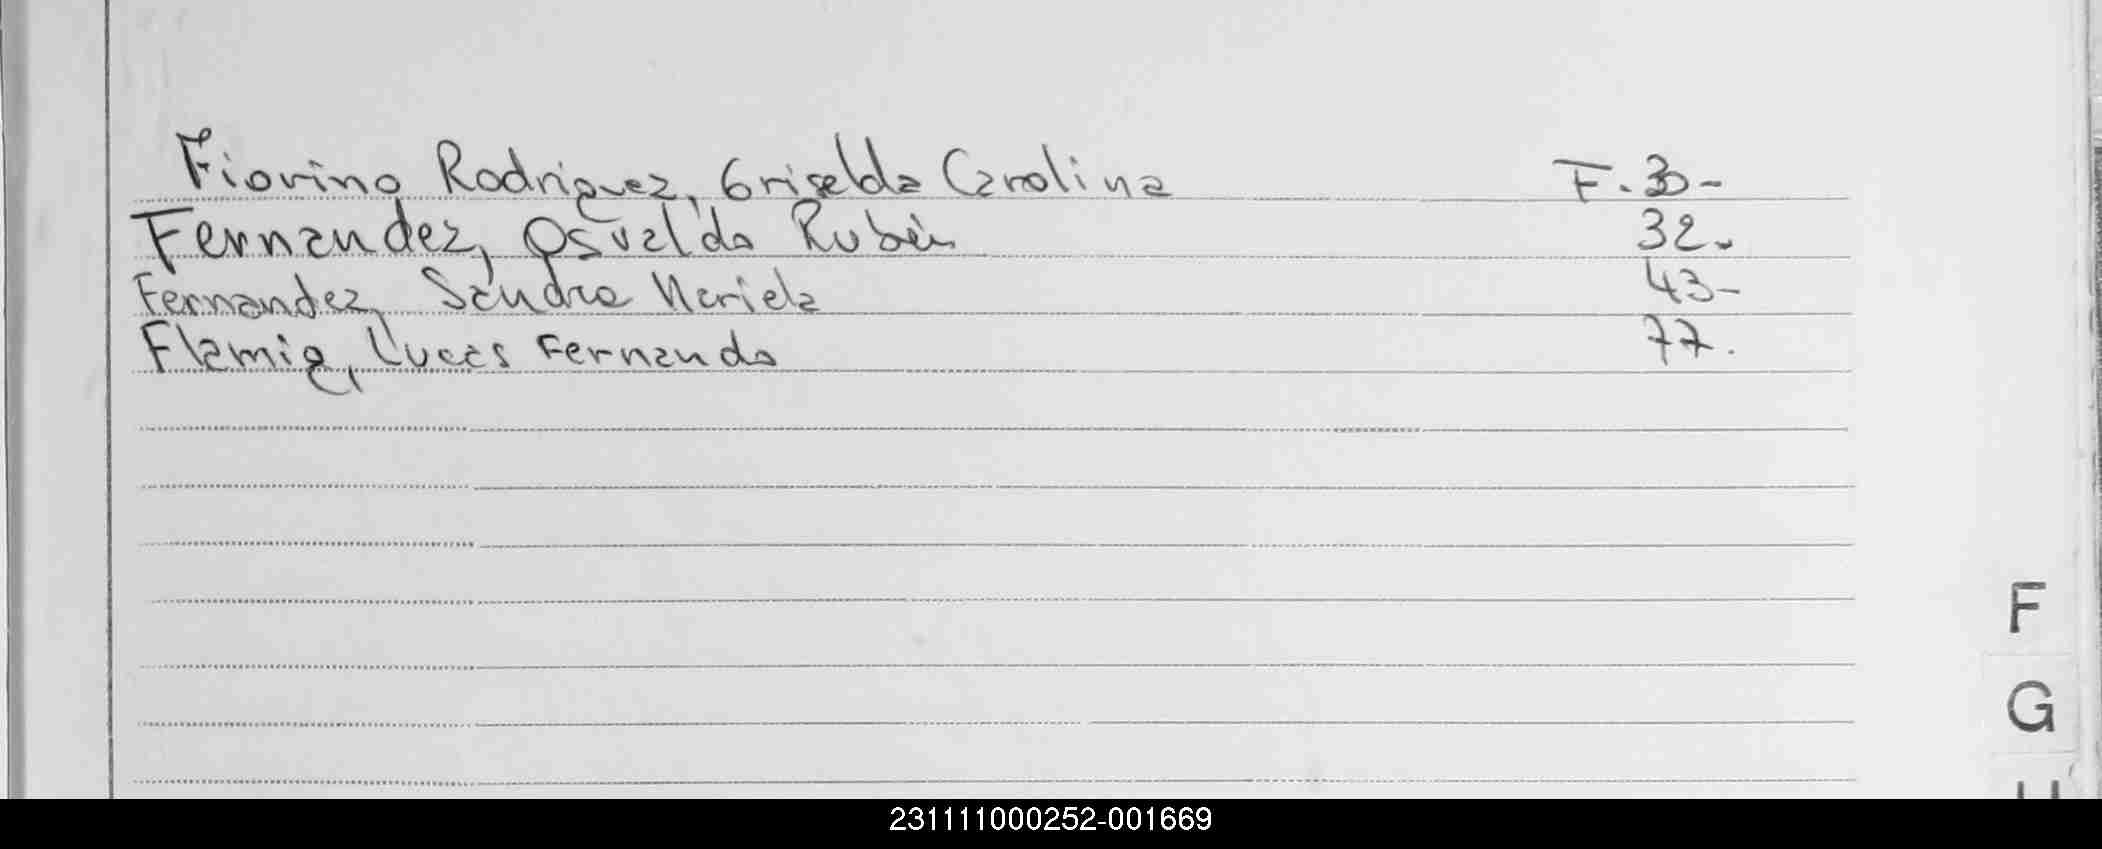 Fiorino Rodriguez, Griselda Carolina F. 30-
Fernandez, Osvaldo Rubén 32-
Fernandez, Sandra Mariela 43-
Flamig, Lucas Fernando 77.
F
G
H
231111000252-001669